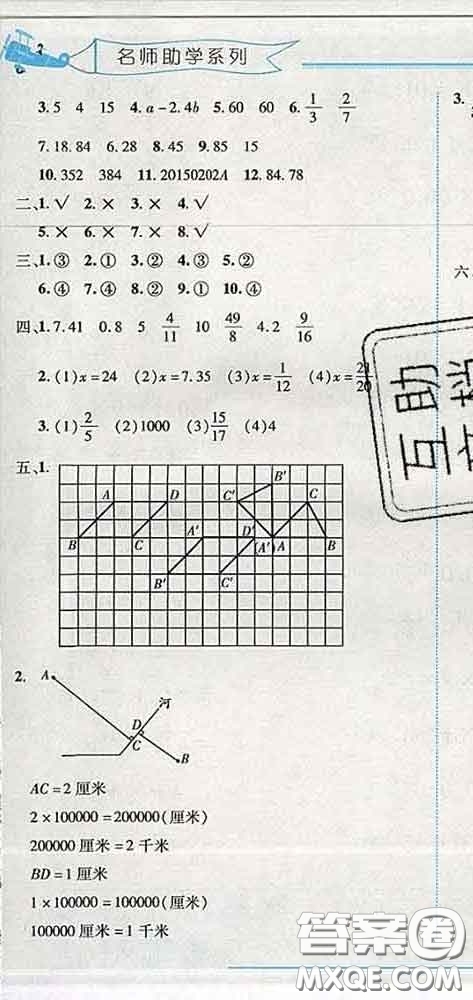 名师助学系列
3.5 4 15 4.a-2.4b 5.60 60 6.1/3 2/7
7.18.84 6.28 8.45 9.85 15
10.352 384 11.20150202A 12.84.78
二、1.√ 2.× 3.× 4.√
5.× 6.× 7.× 8.√
三、1.③ 2.① 3.② 4.③ 5.②
6.④ 7.④ 8.② 9.① 10.④
四、1.7.41 0.8 5 4/11 10 49/8 4.2 9/16
2.(1)x=24 (2)x=7.35 (3)x=1/12 (4)x=21/20
3.(1)2/5 (2)1000 (3)15/17 (4)4
五、1.
B'
A D C' C
B C A' D' (A') A B
B' C'
2. A
河
D
C
B
AC=2厘米
2×100000=200000(厘米)
200000厘米=2千米
BD=1厘米
1×100000=100000(厘米)
100000厘米=1千米
3.
六
互助
答案卷
MXQE.COM